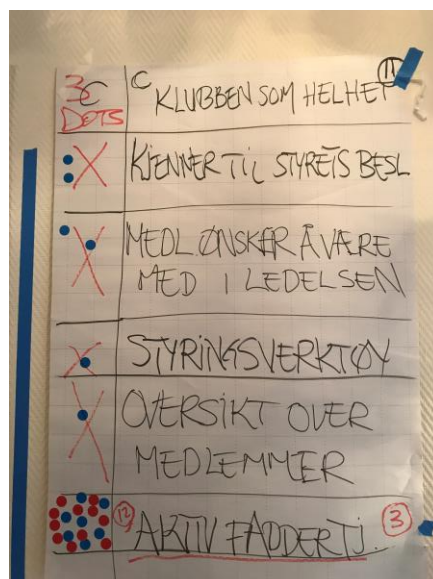 3C C KLUBBEN SOM HELHET 11
DOTS
KJENNER TIL STYRETS BESL
MEDL ØNSKER Å VÆRE
MED I LEDELSEN
STYRINGSVERKTØY
OVERSIKT OVER
MEDLEMMER
12 AKTIV FADDERTJ. 3